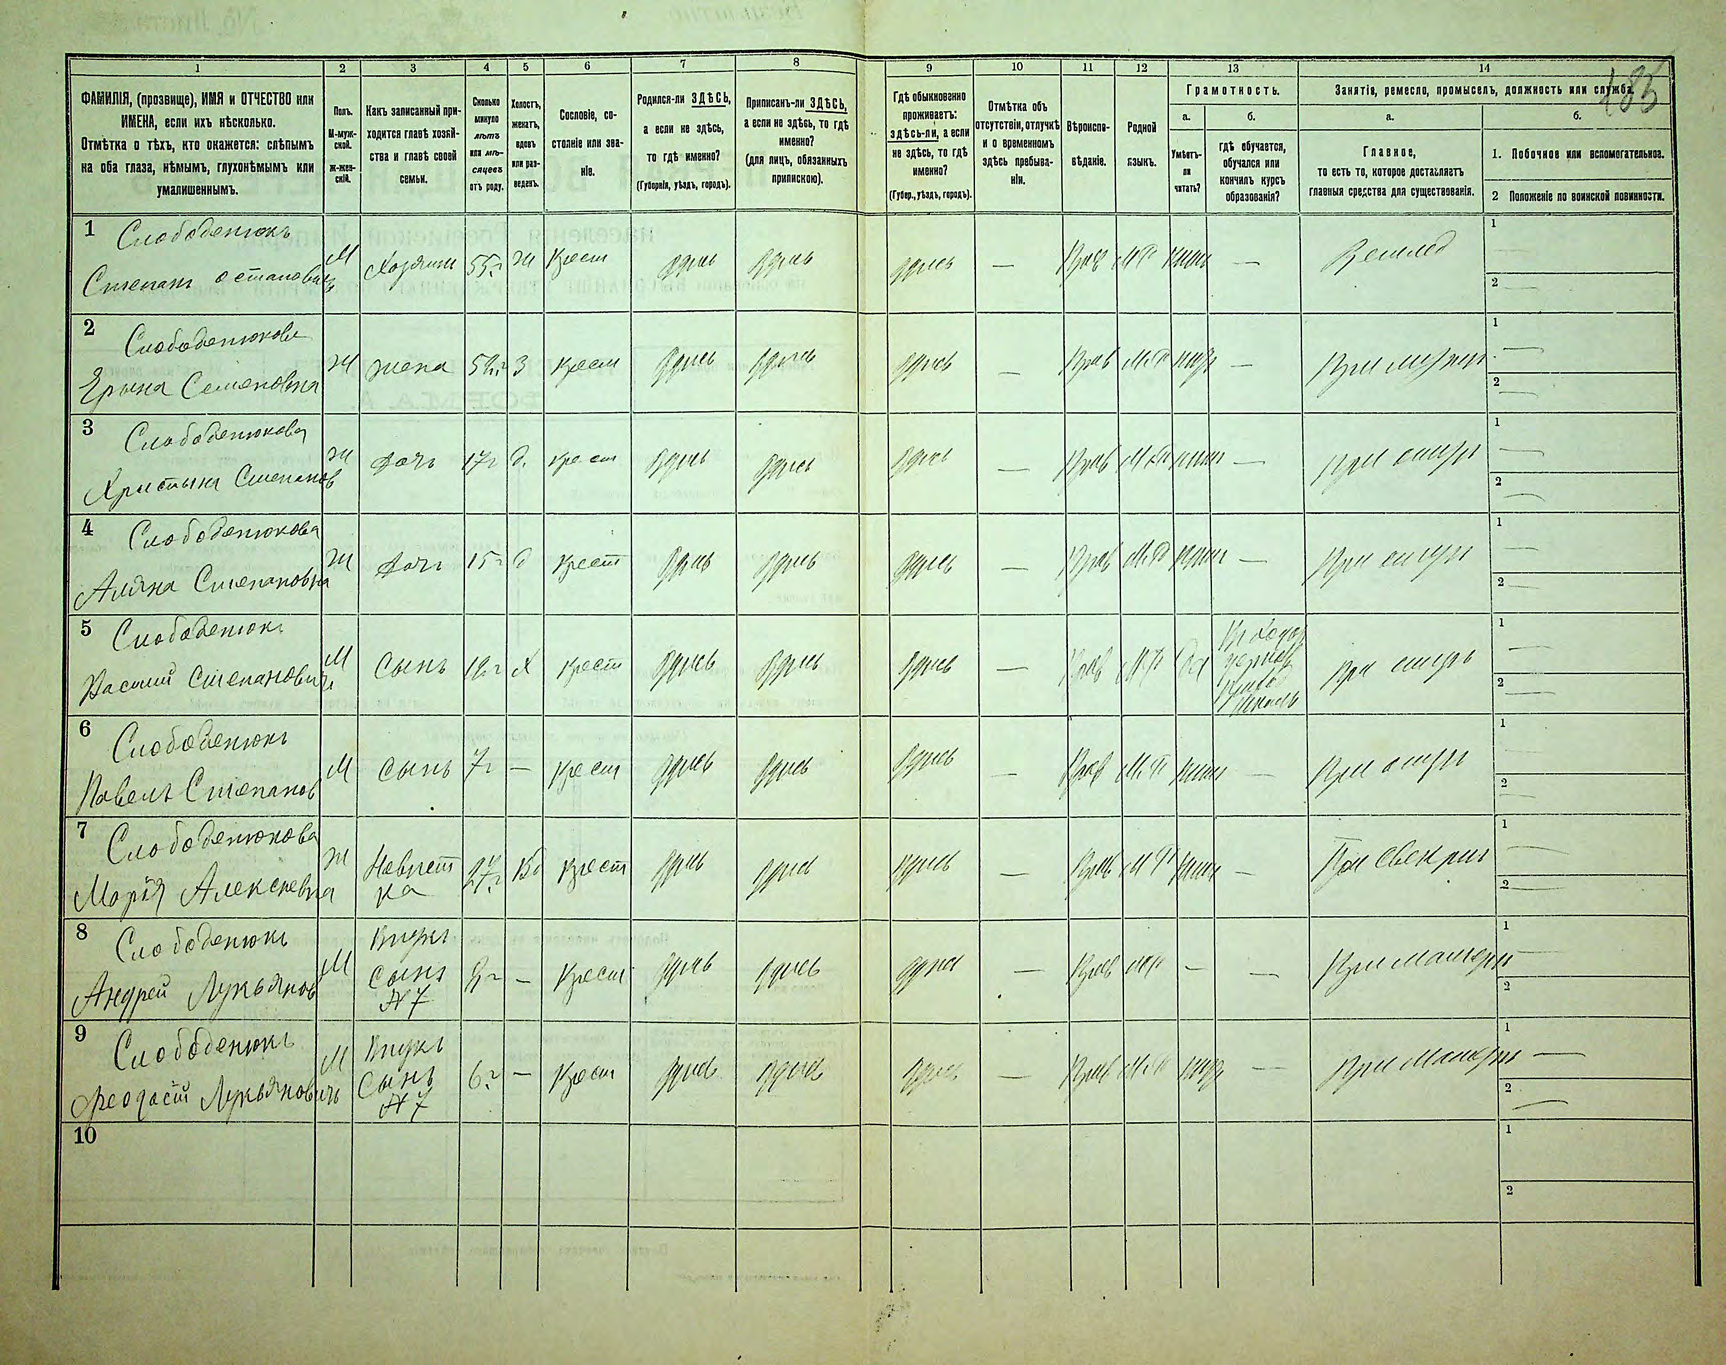 185
1 2 3 4 5 6 7 8 9 10 11 12 13 14
ФАМИЛІЯ, (прозвище), ИМЯ и ОТЧЕСТВО или
ИМЕНА, если ихъ нѣсколько.
Отмѣтка о тѣхъ, кто окажется: слѣпымъ
на оба глаза, нѣмымъ, глухонѣмымъ или
умалишеннымъ.
Полъ.
М-муж-
ской.
ж-жен-
скій.
Какъ записанный при-
ходится главѣ хозяй-
ства и главѣ своей
семьи.
Сколько
минуло
лѣтъ
или мѣ-
сяцевъ
отъ роду.
Холостъ,
женатъ,
вдовъ
или раз-
веденъ.
Сословіе, со-
стояніе или зва-
ніе.
Родился-ли ЗДѢСЬ,
а если не здѣсь,
то гдѣ именно?
(Губернія, уѣздъ, городъ).
Приписанъ-ли ЗДѢСЬ,
а если не здѣсь, то гдѣ
именно?
(для лицъ, обязанныхъ
припискою).
Гдѣ обыкновенно
проживаетъ:
здѣсь-ли, а если
не здѣсь, то гдѣ
именно?
(Губер., уѣздъ, городъ).
Отмѣтка объ
отсутствіи, отлучкѣ
и о временномъ
здѣсь пребыва-
ніи.
Вѣроиспо-
вѣданіе.
Родной
языкъ.
Грамотность.
а.
Умѣетъ-
ли
читать?
б.
гдѣ обучается,
обучался или
кончилъ курсъ
образованія?
Занятія, ремесло, промыселъ, должность или служба.
а.
Главное,
то есть то, которое доставляетъ
главныя средства для существованія.
б.
1. Побочное или вспомогательное.
2 Положеніе по воинской повинности.
1 Слободенюкъ
Степанъ Остаповичъ М Хозяинъ 55 г Ж Крест здѣсь здѣсь здѣсь — Прав М.Р — Землед 1 — 2 —
2 Слободенюкова
Ерына Семеновна Ж жена З Крест здѣсь здѣсь здѣсь — Прав М.Р — При мужи 1 — 2 —
3 Слободенюкова
Христына Степанов Ж дочь 17 г д. крест здѣсь здѣсь здѣсь — Прав М.Р — При отцѣ 1 — 2 —
4 Слободенюкова
Степановна Ж дочь 15 г д крест здѣсь здѣсь здѣсь — Прав М.Р — При отцѣ 1 — 2 —
5 Слободенюкъ
Василий Степанович М сынъ 12 г Х крест здѣсь здѣсь здѣсь — Прав М.Р да При отцѣ 1 — 2 —
6 Слободенюкъ
Павелъ Степанов М сынъ 7 г — крест здѣсь здѣсь здѣсь — Прав М.Р — При отцѣ 1 — 2 —
7 Слободенюкова
Марія Алексеевна Ж Невист
ка 27 г Вд Крест здѣсь здѣсь здѣсь Прав М.Р — При свекри 1 — 2 —
8 Слободенюкъ
Андрей Лукьянов М Внукъ
сынъ
№ 7 — Крест здѣсь здѣсь здѣсь — Прав М.Р — — При матери 1 — 2 —
9 Слободенюкъ
Феодосій Лукьяновичъ М Внукъ
Сынъ
№ 7 6 г — Крест здѣсь здѣсь здѣсь — Прав М.Р — При матери 1 — 2 —
10 1 2